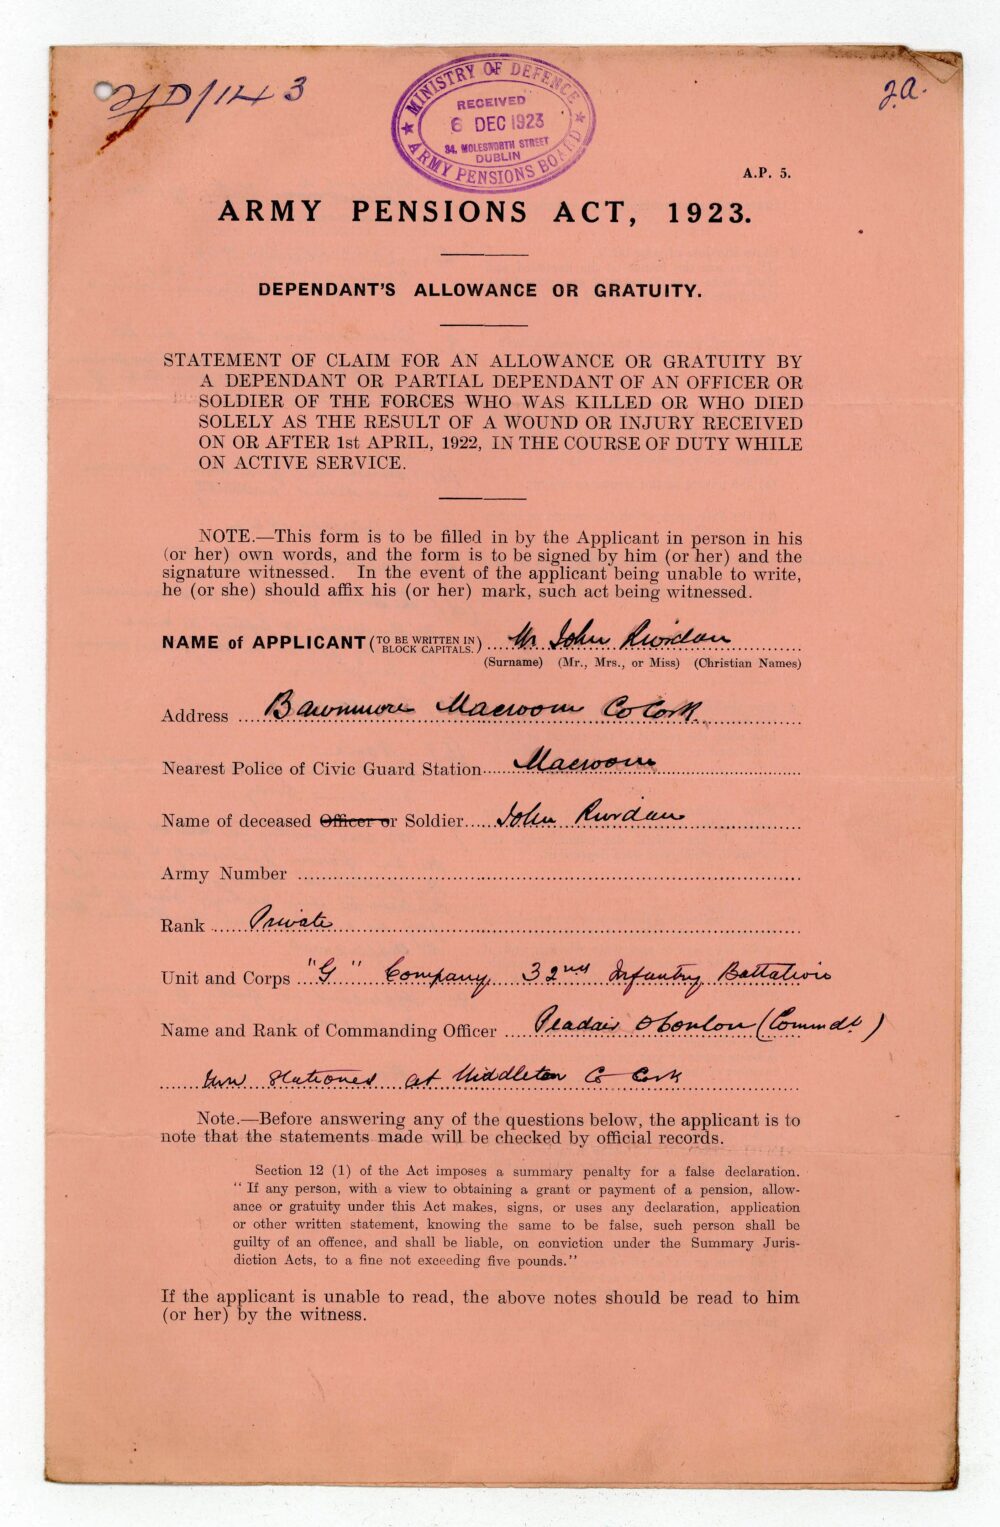 2/D/143
MINISTRY OF DEFENCE
RECEIVED
6 DEC 1923
34. MOLESWORTH STREET
DUBLIN
ARMY PENSIONS BOARD
2.a.
A.P. 5.
ARMY PENSIONS ACT, 1923.
DEPENDANT'S ALLOWANCE OR GRATUITY.
STATEMENT OF CLAIM FOR AN ALLOWANCE OR GRATUITY BY
A DEPENDANT OR PARTIAL DEPENDANT OF AN OFFICER OR
SOLDIER OF THE FORCES WHO WAS KILLED OR WHO DIED
SOLELY AS THE RESULT OF A WOUND OR INJURY RECEIVED
ON OR AFTER 1st APRIL, 1922, IN THE COURSE OF DUTY WHILE
ON ACTIVE SERVICE.
NOTE.—This form is to be filled in by the Applicant in person in his
(or her) own words, and the form is to be signed by him (or her) and the
signature witnessed. In the event of the applicant being unable to write,
he (or she) should affix his (or her) mark, such act being witnessed.
NAME of APPLICANT (TO BE WRITTEN IN BLOCK CAPITALS.) Mr John Riordan
(Surname) (Mr., Mrs., or Miss) (Christian Names)
Address Bawnmore Macroom Co Cork.
Nearest Police of Civic Guard Station Macroom
Name of deceased Officer or Soldier John Riordan
Army Number
Rank Private
Unit and Corps "G" Company 32nd Infantry Battalion
Name and Rank of Commanding Officer Peadair OConlon (Commdt)
now stationed at Middleton Co Cork
Note.—Before answering any of the questions below, the applicant is to
note that the statements made will be checked by official records.
Section 12 (1) of the Act imposes a summary penalty for a false declaration.
" If any person, with a view to obtaining a grant or payment of a pension, allow-
ance or gratuity under this Act makes, signs, or uses any declaration, application
or other written statement, knowing the same to be false, such person shall be
guilty of an offence, and shall be liable, on conviction under the Summary Juris-
diction Acts, to a fine not exceeding five pounds."
If the applicant is unable to read, the above notes should be read to him
(or her) by the witness.